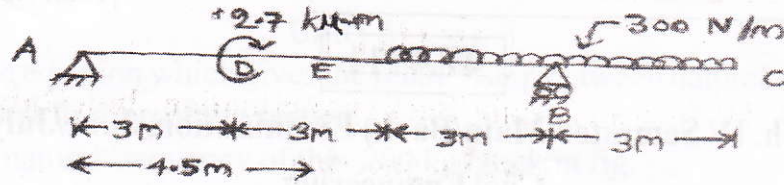 +2.7 kN-m
300 N/m
A D E C
B
3m 3m 3m 3m
4.5m